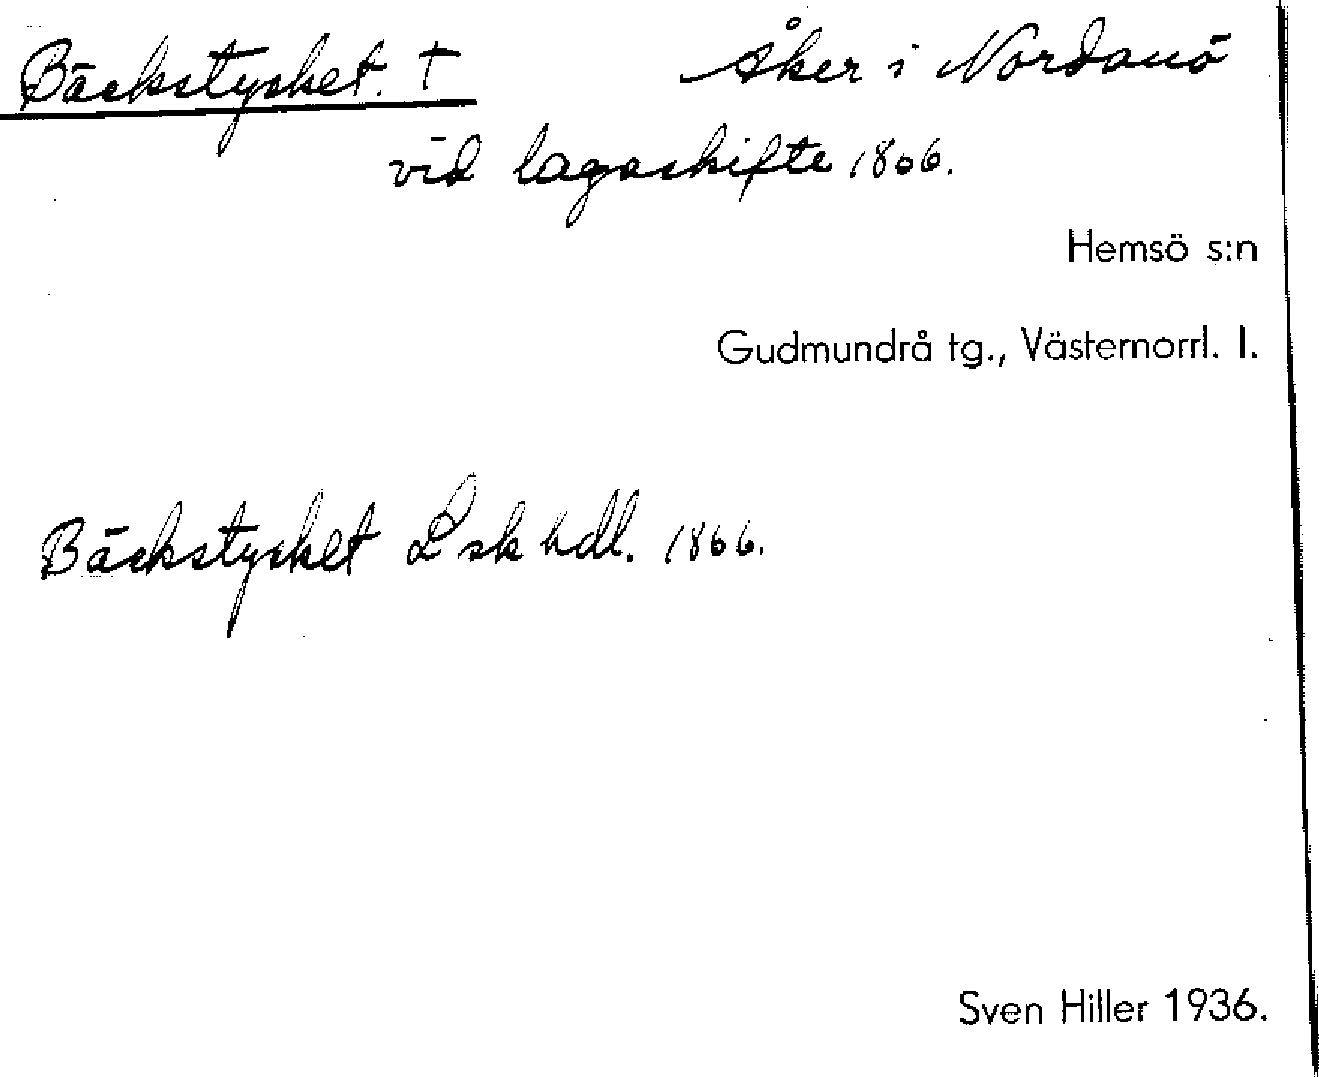 Bäckstycket. † Åker i Nordanö
vid lagaskifte 1866.
Hemsö s:n
Gudmundrå tg., Västernorrl. l.
Bäckstycket Lsk hdl. 1866.
Sven Hiller 1936.